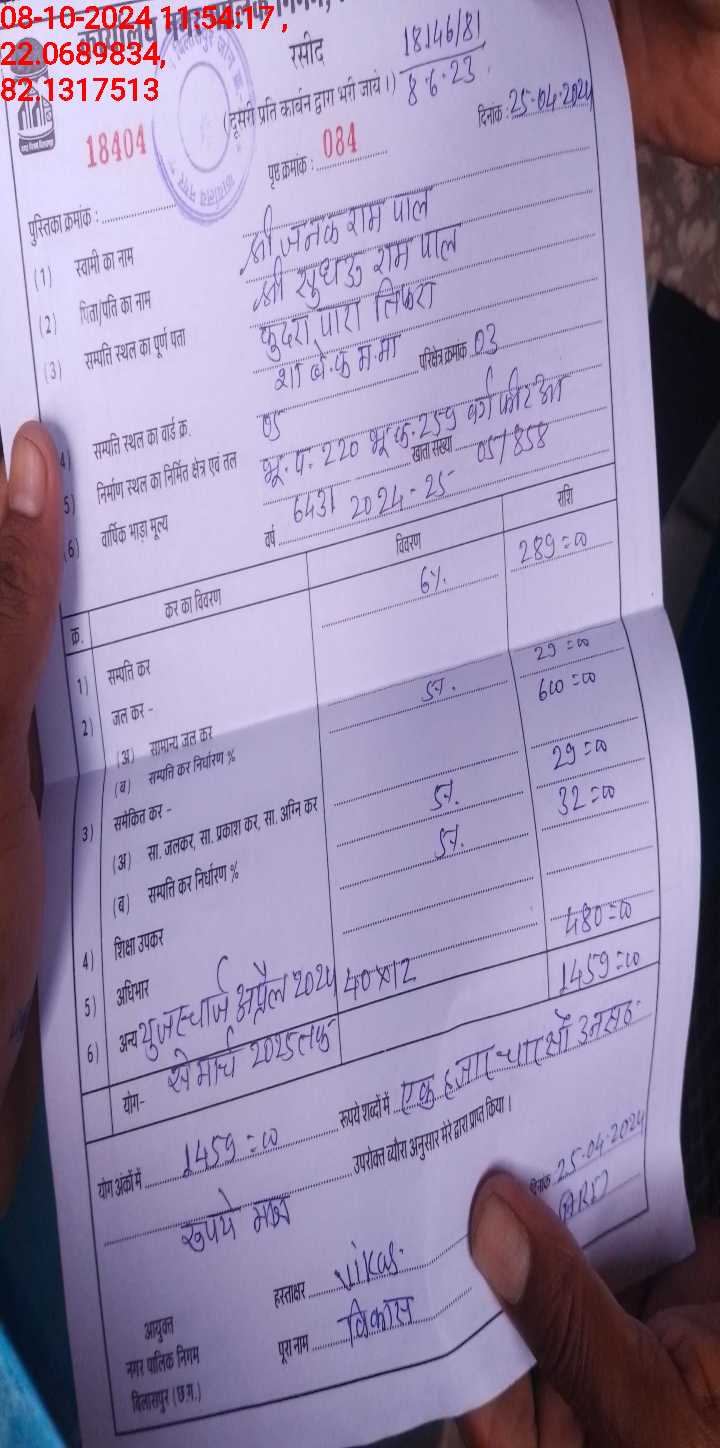 08-10-2024 11:54:17,
22.0689834,
82.1317513
रसीद
18146/81
8.6.23
(दूसरी प्रति कार्बन द्वारा भरी जाये।)
दिनांक : 25-04-2024
18404
पुस्तिका क्रमांक :
पृष्ठ क्रमांक : 084
(1) स्वामी का नाम श्री जनक राम पाल
(2) पिता/पति का नाम श्री सुधऊ राम पाल
(3) सम्पति स्थल का पूर्ण पता कुदरा पारा तिफरा
परिक्षेत्र क्रमांक 03
4) सम्पति स्थल का वार्ड क्र. 05
5) निर्माण स्थल का निर्मित क्षेत्र एवं तल भू.प. 220 भू.क. 259 वर्ग फीट
(6) वार्षिक भाड़ा मूल्य 6431 खाता संख्या 05/858
वर्ष 2024-25
क्र. कर का विवरण विवरण राशि
1) सम्पति कर 6%. 289=00
2) जल कर -
(अ) सामान्य जल कर 5%. 29=00
(ब) सम्पति कर निर्धारण % 600=00
3) समेकित कर -
(अ) सा. जलकर, सा. प्रकाश कर, सा. अग्नि कर 5%. 29=00
(ब) सम्पति कर निर्धारण % 5%. 32=00
4) शिक्षा उपकर
5) अधिभार
6) अन्य युजरचार्ज अप्रैल 2024 40×12 480=00
से मार्च 2025 तक
योग- 1459=00
योग अंकों में 1459=00 रूपये शब्दों में एक हजार चार सौ उनसठ
रूपये मात्र उपरोक्त ब्यौरा अनुसार मेरे द्वारा प्राप्त किया।
दिनांक 25-04-2024
हस्ताक्षर Vikas (ARI)
आयुक्त
नगर पालिक निगम पूरा नाम विकास
बिलासपुर (छ.ग.)